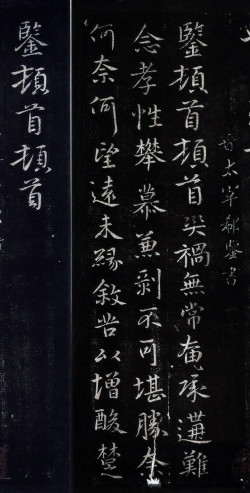 晉太宰郗鑒書
鑒頓首頓首災禍無常奄承遘難
念孝性攀慕兼剝不可堪勝奈
何奈何望遠未緣敘苦以增酸楚
鑒頓首頓首